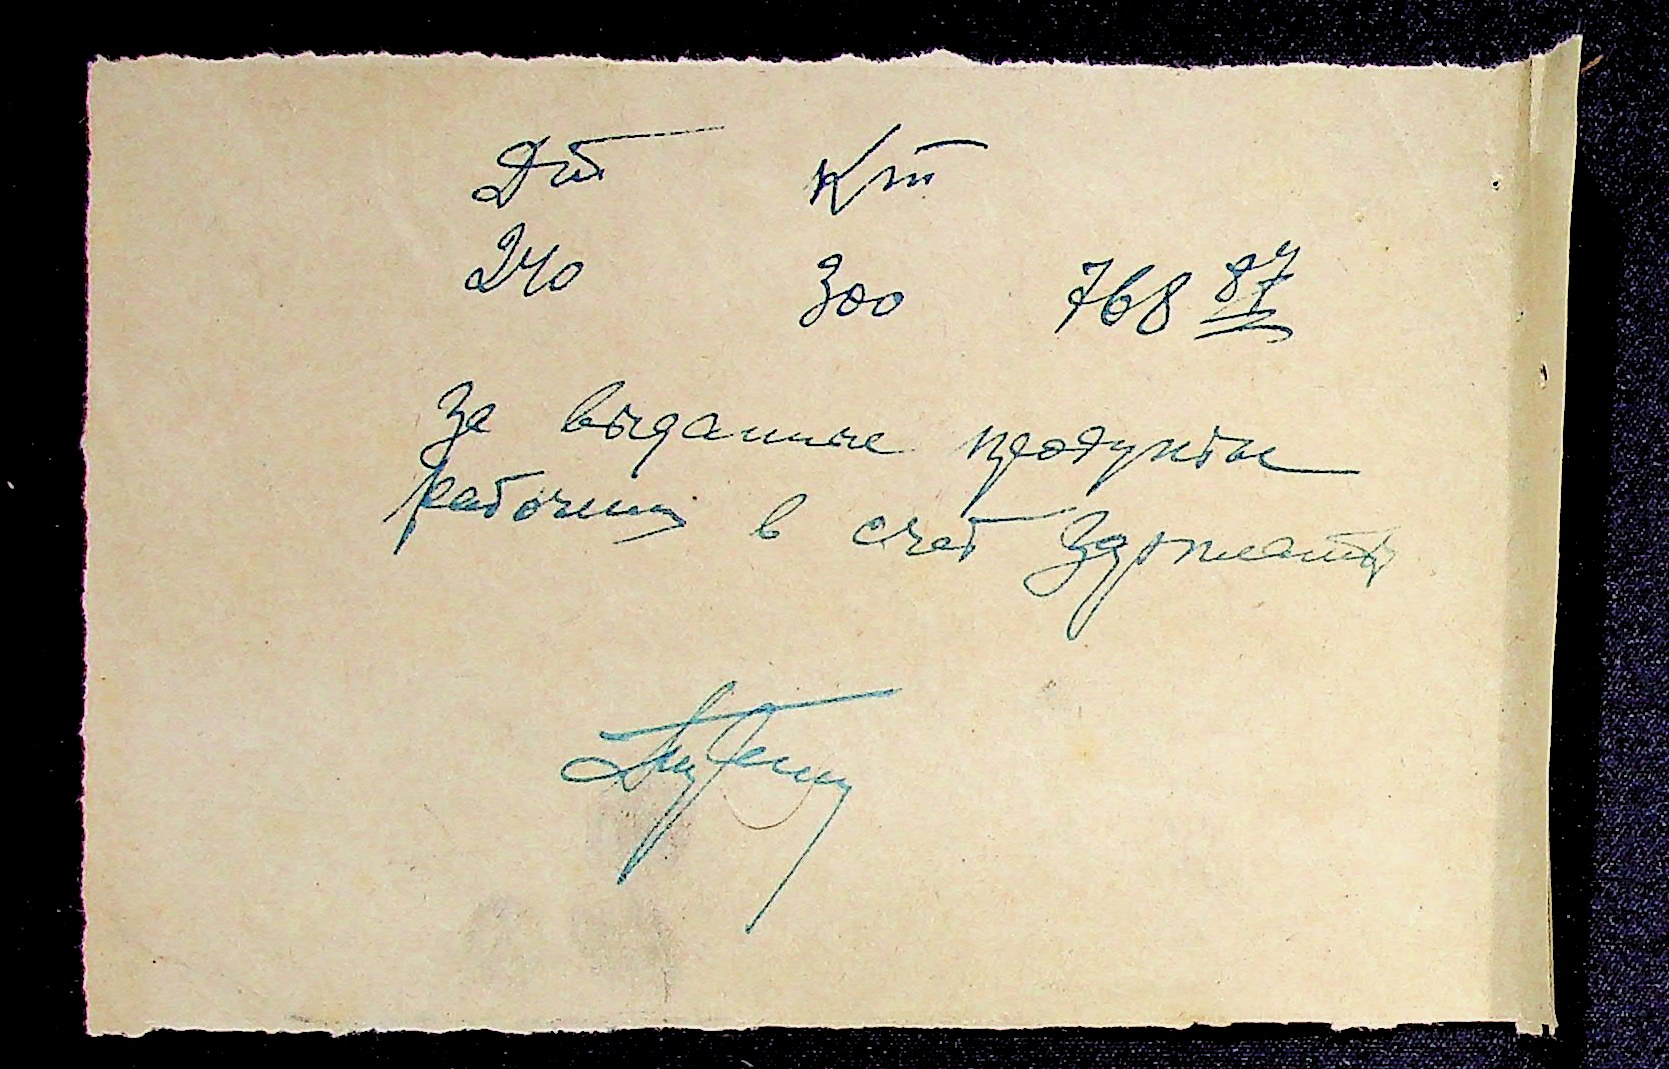 Дт Кт
240 300 768 87
За выданные продукты
рабочим в счет зарплаты